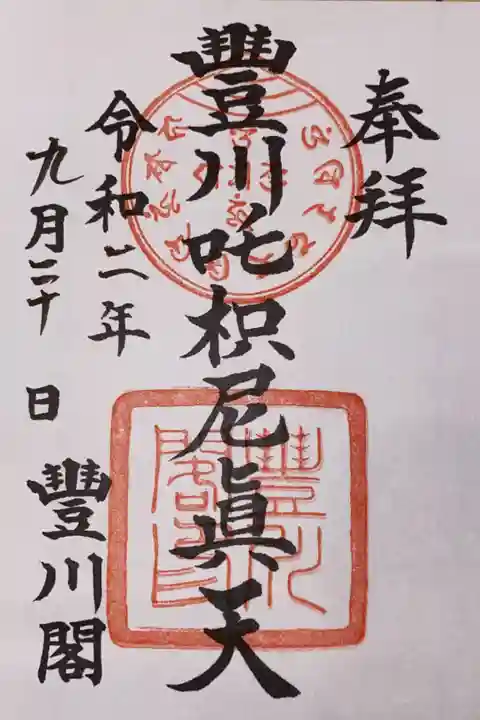 奉拝
豐川吒枳尼眞天
令和二年
九月二十日
豐川閣
豐川閣